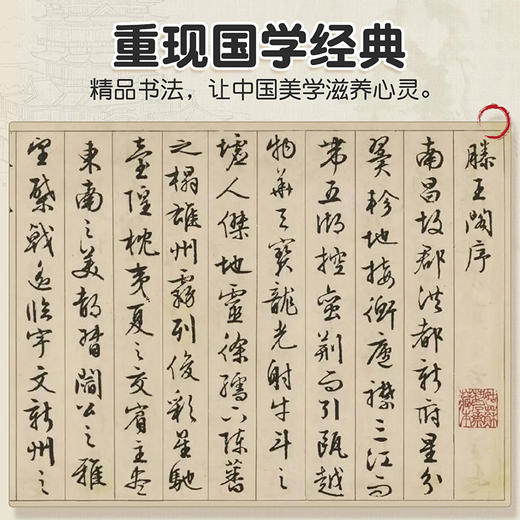 重现国学经典
精品书法，让中国美学滋养心灵。
滕王閣序
南昌故郡洪都新府星分
翼軫地接衡廬襟三江而
帶五湖控蠻荊而引甌越
物華天寶龍光射牛斗之
墟人傑地靈徐孺下陳蕃
之榻雄州霧列俊彩星馳
臺隍枕夷夏之交賓主盡
東南之美都督閻公之雅
望棨戟遙臨宇文新州之